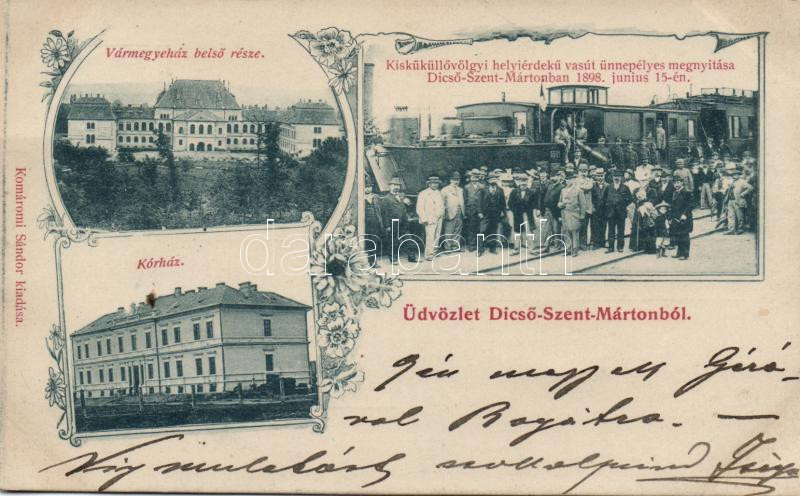 Vármegyeház belső része.
Kisküküllővölgyi helyiérdekű vasút ünnepélyes megnyitása
Dicső-Szent-Mártonban 1898. junius 15-én.
Komáromi Sándor kiadása.
Kórház.
darabanth
Üdvözlet Dicső-Szent-Mártonból.
megyek
Víg mulatást